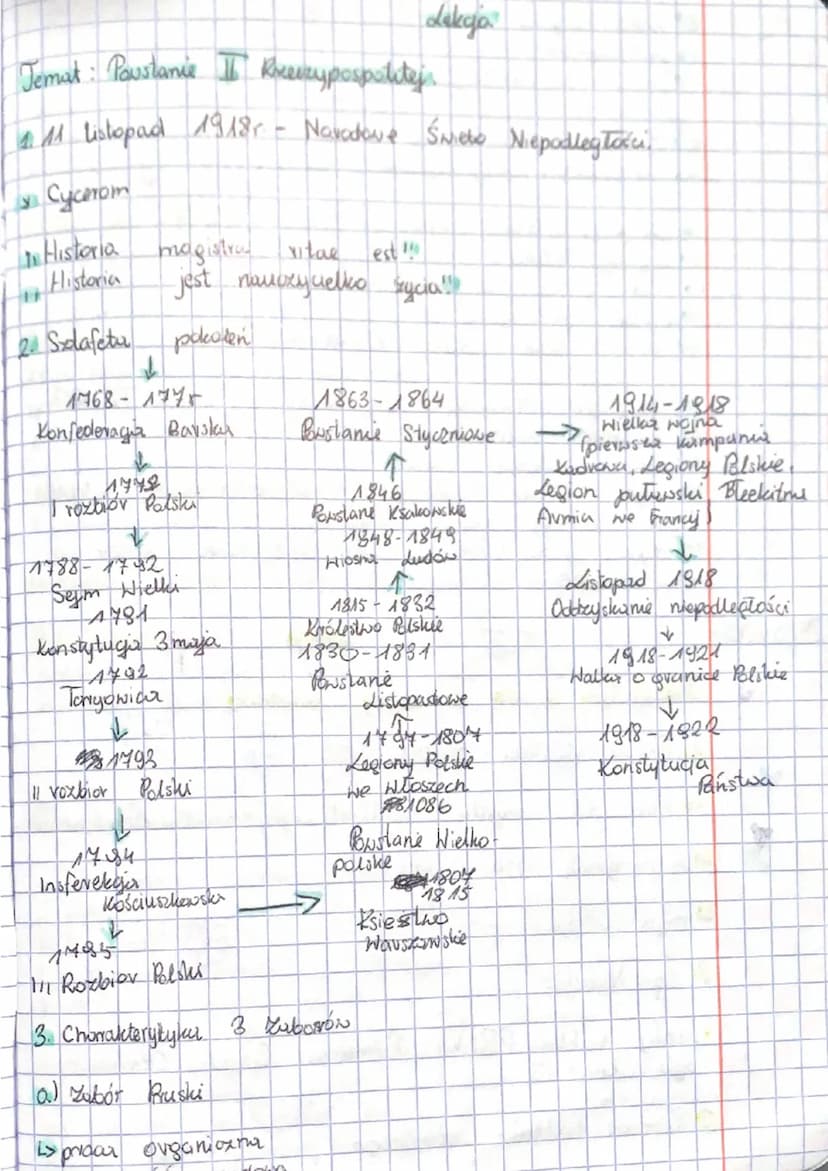 Lekcja
Temat: Powstanie II Rzeczypospolitej.
1. 11 listopad 1918r - Narodowe Święto Niepodległości.
Cycerom
Historia magistra vitae est!!
Historia jest nauczycielko życia!!
2. Sztafeta pokoleń
1768 - 177
Konfederacja Barska
1772
I rozbiór Polski
1788 - 1792
Sejm Wielki
1791
Konstytucja 3 maja
1792
Targowica
1793
II rozbior Polski
1794
Insferekcja
Kościuszkowska
1795
III Rozbior Polski
1863 - 1864
Powstanie Styczniowe
1846
Powstane Krakowskie
1848 - 1849
Wiosna Ludów
1815 - 1832
Królestwo Polskie
1830 - 1831
Powstanie
Listopadowe
1797 - 1807
Legiony Polskie
we Włoszech
1086
Powstanie Wielko-
polskie
1807
1815
Księstwo
Warszawskie
1914 - 1918
Wielka wojna
(pierwsza kampania
Kadrowa, Legiony Polskie,
Legion puławski Błękitna
Armia we Francji)
Listopad 1918
Odzyskanie niepodległości
1918 - 1921
Walka o granice Polskie
1918 - 1922
Konstytucja
Państwa
3. Charakterytyka 3 Zaborów
a) Zabór Pruski
↳ praca organiczna